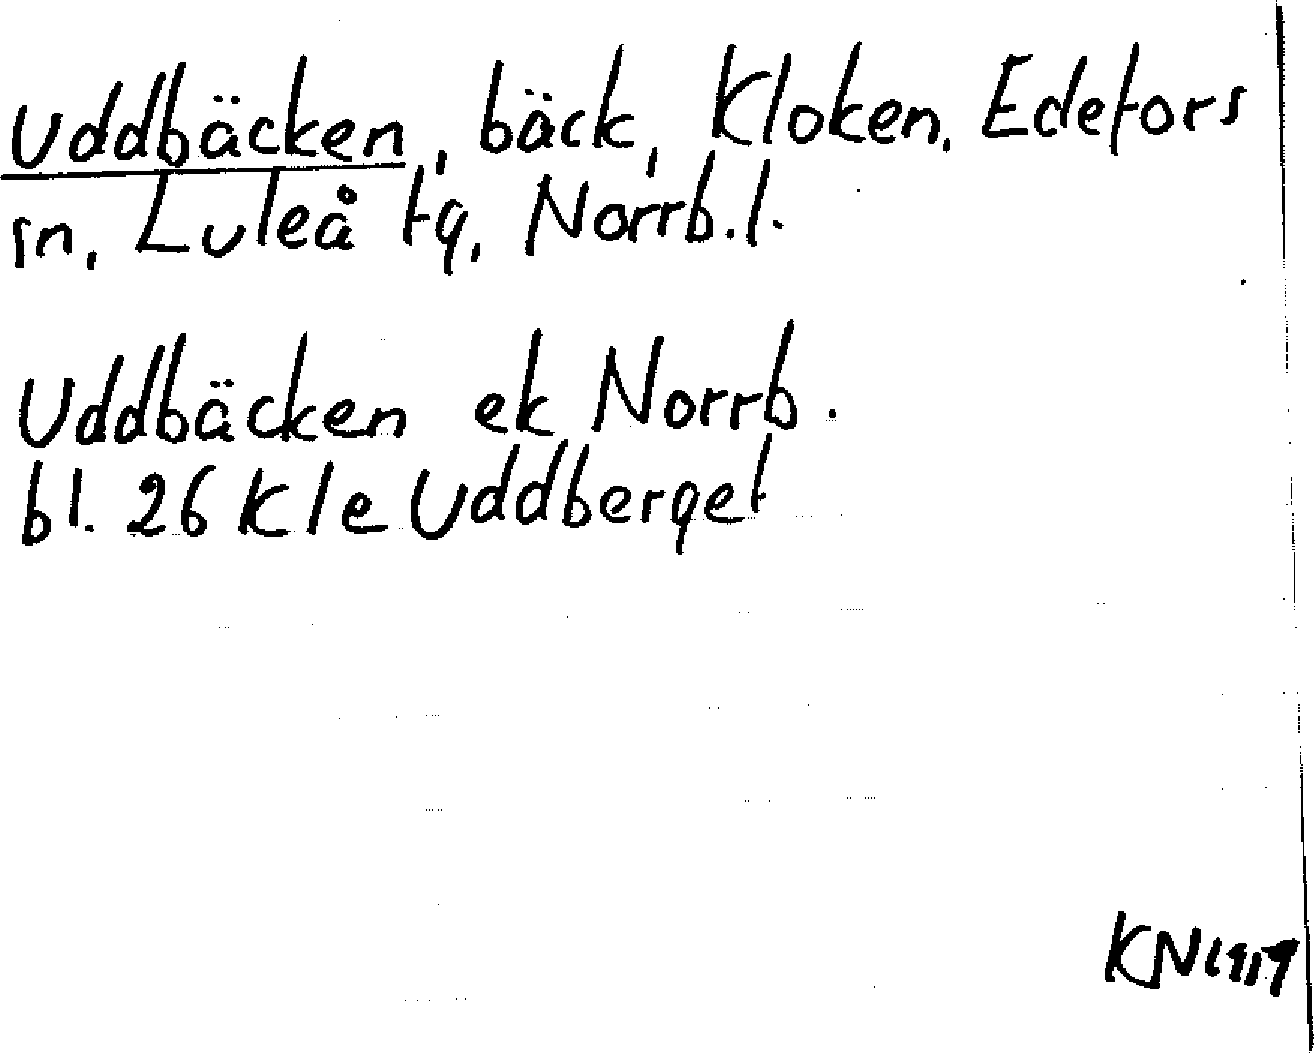 Uddbäcken, bäck, Kloken, Edefors
sn, Luleå tg, Norrb.l.
Uddbäcken ek Norrb.
bl. 26 Kle Uddberget
KN 1919